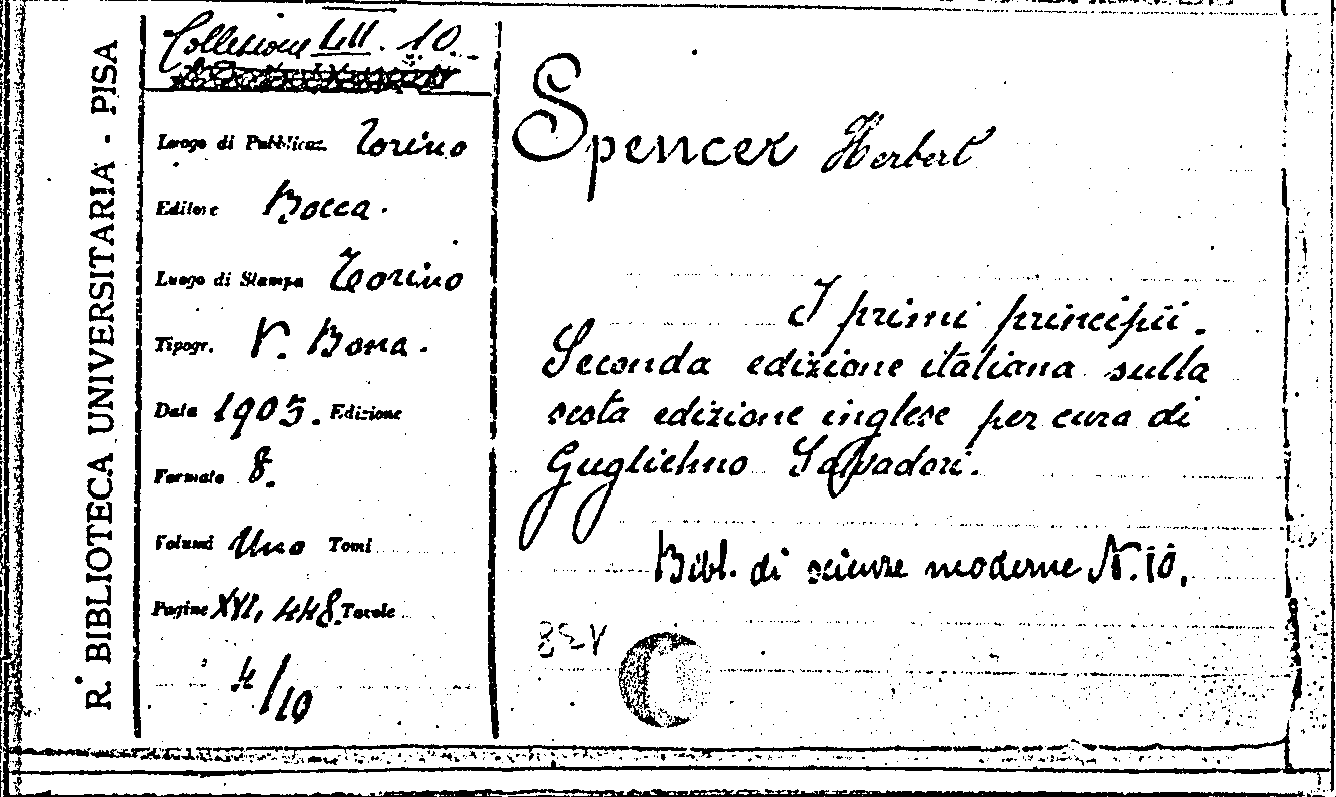 R.ª BIBLIOTECA UNIVERSITARIA - PISA
Collezione LII. 10.
Luogo di Pubblicaz. Torino
Editore Bocca.
Luogo di Stampa Torino
Tipogr. V. Bona.
Data 1905. Edizione
Formato 8.
Volumi Uno Tomi
Pagine XVI, 448. Tavole
4/10
Spencer Herbert
I primi principii.
Seconda edizione italiana sulla
sesta edizione inglese per cura di
Guglielmo Salvadori.
Bibl. di scienze moderne N. 10.